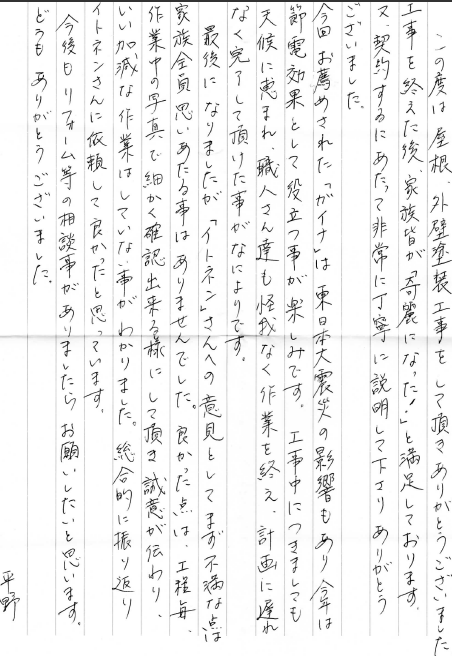 この度は屋根、外壁塗装工事をして頂きありがとうございました
工事を終えた後、家族皆が「奇麗になった！」と満足しております。
又、契約するにあたって非常に丁寧に説明して下さりありがとう
ございました。
今回お薦めされた「ガイナ」は東日本大震災の影響もあり今年は
節電効果として役立つ事が楽しみです。工事中につきましても
天候に恵まれ、職人さん達も怪我なく作業を終え、計画に遅れ
なく完了して頂けた事がなによりです。
最後になりましたが「イトネン」さんへの意見としてまず不満な点は
家族全員思いあたる事はありませんでした。良かった点は、工程毎、
作業中の写真で細かく確認出来る様にして頂き誠意が伝わり、
いい加減な作業はしていない事がわかりました。総合的に振り返り
イトネンさんに依頼して良かったと思っています。
今後もリフォーム等の相談事がありましたらお願いしたいと思います。
どうもありがとうございました。
平野